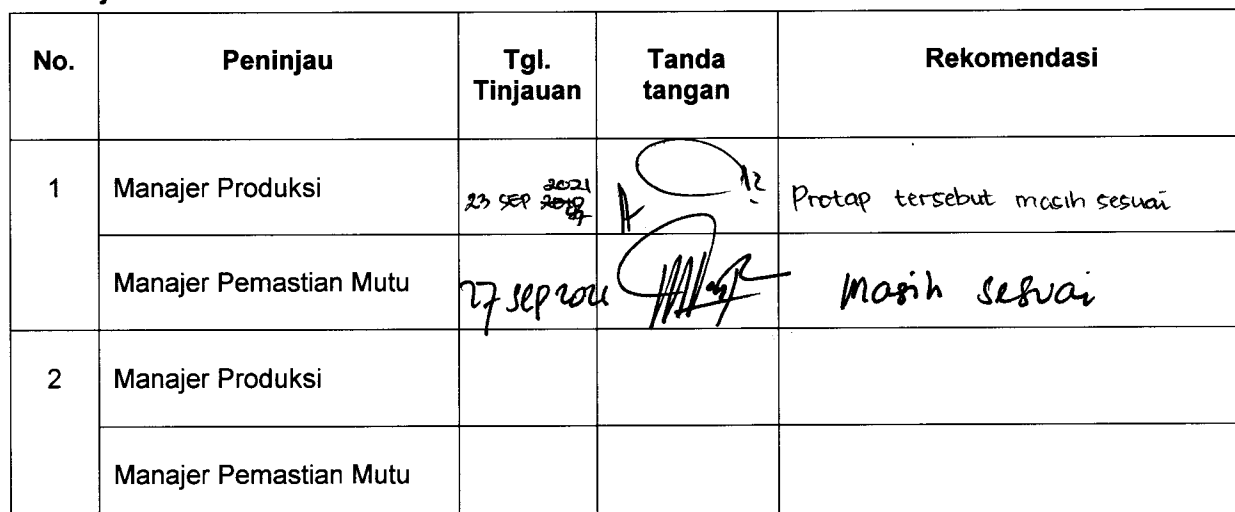 No. Peninjau Tgl. Tinjauan Tanda tangan Rekomendasi
1 Manajer Produksi 23 SEP 2021 Protap tersebut masih sesuai
Manajer Pemastian Mutu 27 Sep 2021 masih sesuai
2 Manajer Produksi
Manajer Pemastian Mutu